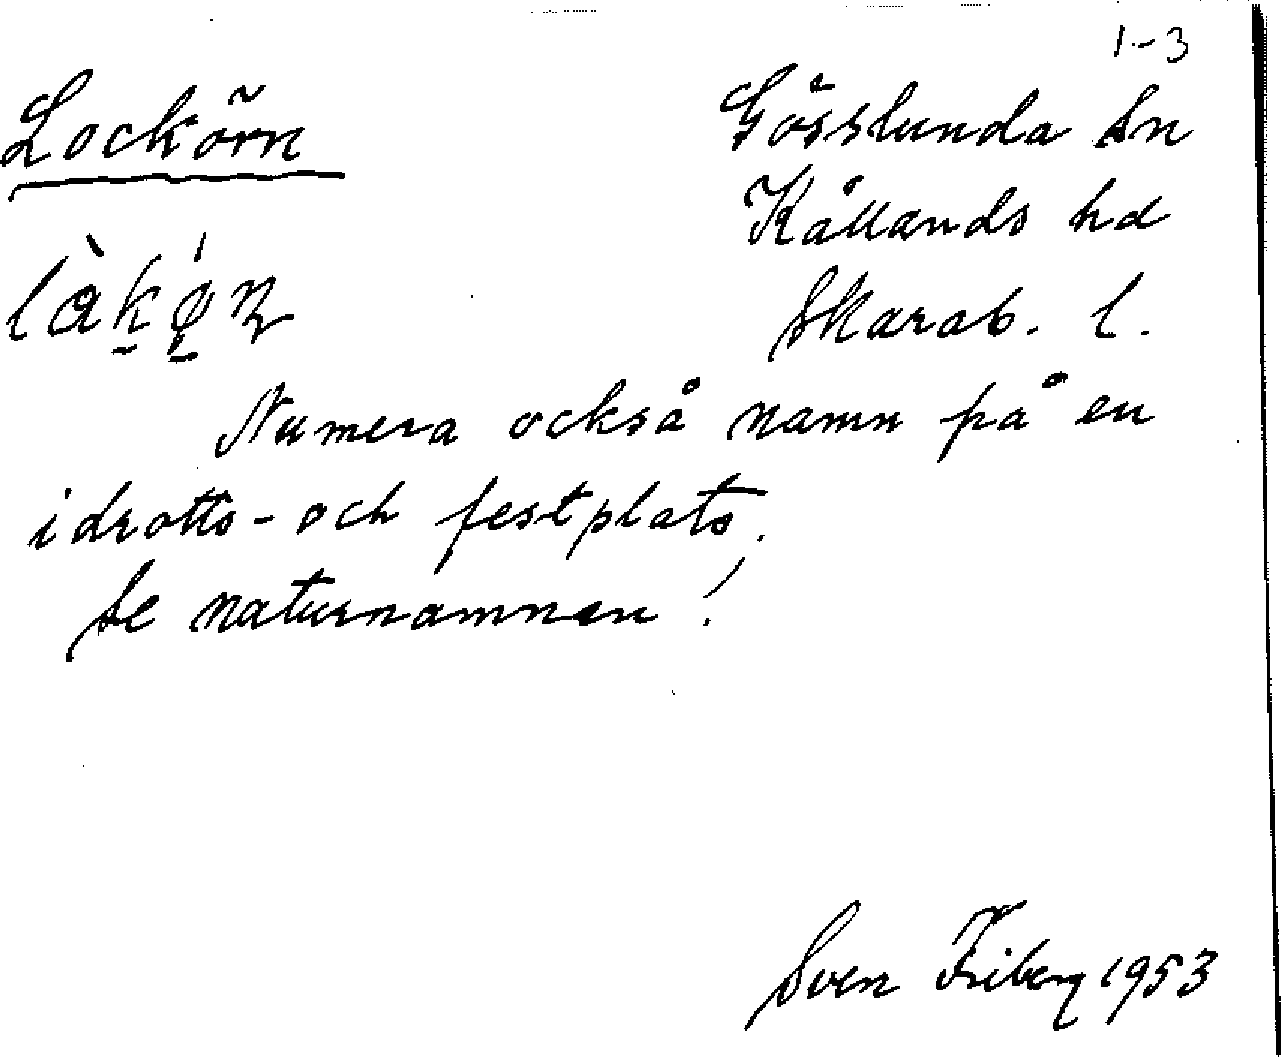 1-3
Lockörn
Gösslunda Sn
Kållands hd
Skarab. l.
Numera också namn på en
idrotts- och festplats.
Se naturnamnen!
Sven Friberg 1953